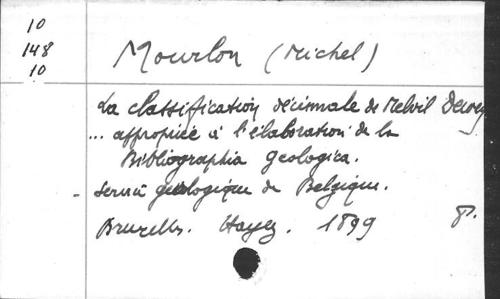 10
148
10
Mourlon (Michel)
La classification décimale de Melvil Dewey
... appropriée à l'élaboration de la
Bibliographia geologica.
- Service geologique de Belgique.
Bruxelles. Hayez. 1899 P.